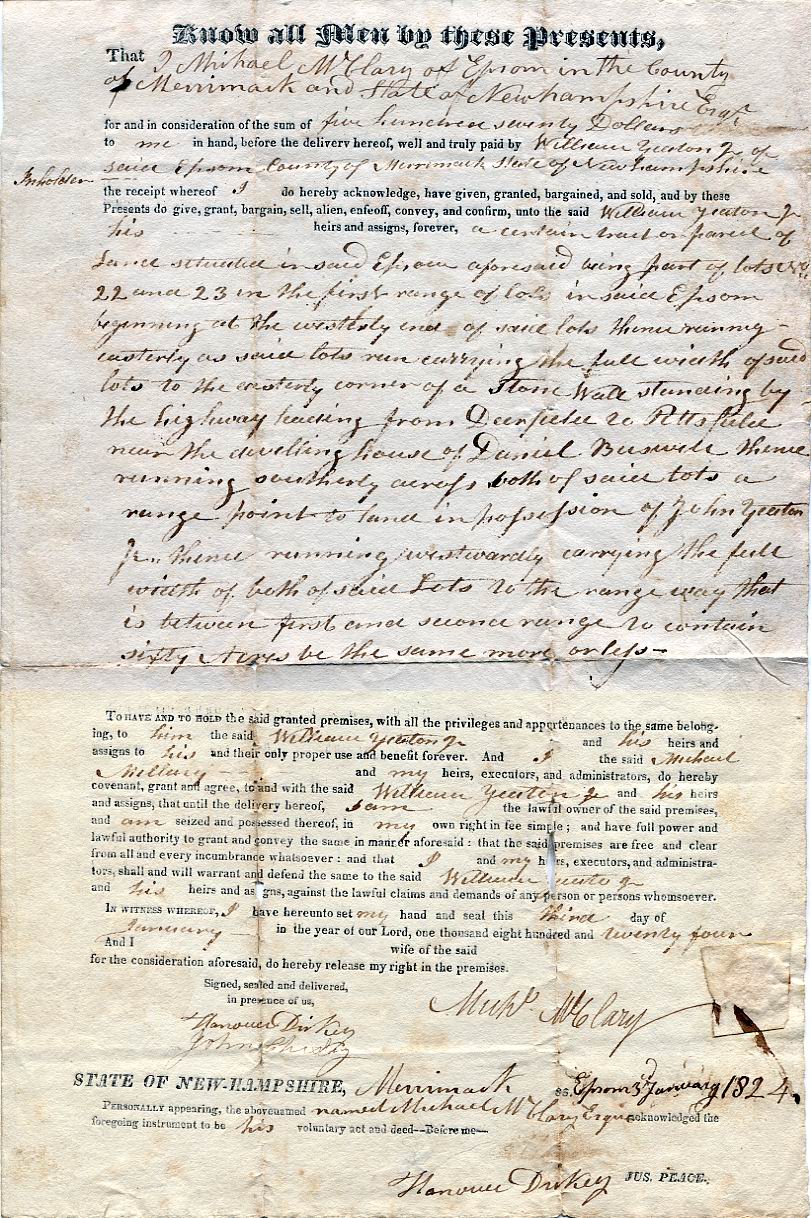 Know all Men by these Presents,
That I Mihael McClary of Epsom in the County
of Merrimack and State of Newhampshire Esqr
for and in consideration of the sum of five hundred seventy Dollars
to me in hand, before the delivery hereof, well and truly paid by William Yeaton Jr of
said Epsom County of Merrimack State of Newhampshire
Inholder
the receipt whereof I do hereby acknowledge, have given, granted, bargained, and sold, and by these
Presents do give, grant, bargain, sell, alien, enfeoff, convey, and confirm, unto the said William Yeaton Jr
his heirs and assigns, forever, a certain tract or parcel of
Land situated in said Epsom aforesaid being part of lots No
22 and 23 in the first range of lots in said Epsom
beginning at the westerly end of said lots thence running
easterly as said lots run carrying the full width of said
lots to the easterly corner of a Stone Wall standing by
the highway leading from Deerfield to Pittsfield
near the dwelling house of Daniel Buswell thence
running southerly across both of said lots a
range point to land in possession of John Yeaton
Jr. thence running westwardly carrying the full
width of both of said Lots to the range way that
is between first and second range to contain
sixty Acres be the same more or less
To HAVE AND TO HOLD the said granted premises, with all the privileges and appertenances to the same belong-
ing, to him the said William Yeaton Jr and his heirs and
assigns to his and their only proper use and benefit forever. And I the said Michael
McClary and my heirs, executors, and administrators, do hereby
covenant, grant and agree, to and with the said William Yeaton Jr and his heirs
and assigns, that until the delivery hereof, I am the lawful owner of the said premises,
and am seized and possessed thereof, in my own right in fee simple; and have full power and
lawful authority to grant and convey the same in manner aforesaid: that the said premises are free and clear
from all and every incumbrance whatsoever: and that I and my heirs, executors, and administra-
tors, shall and will warrant and defend the same to the said William Yeaton Jr
and his heirs and assigns, against the lawful claims and demands of any person or persons whomsoever.
IN WITNESS WHEREOF, I have hereunto set my hand and seal this third day of
January in the year of our Lord, one thousand eight hundred and twenty four
And I wife of the said
for the consideration aforesaid, do hereby release my right in the premises.
Signed, sealed and delivered,
in presence of us,
Michl McClary
Hanover Dickey
John
STATE OF NEW-HAMPSHIRE, Merrimack ss. Epsom 3d January 1824.
PERSONALLY appearing, the abovenamed named Michael McClary Esquire acknowledged the
foregoing instrument to be his voluntary act and deed—Before me—
Hanover Dickey JUS. PEACE.